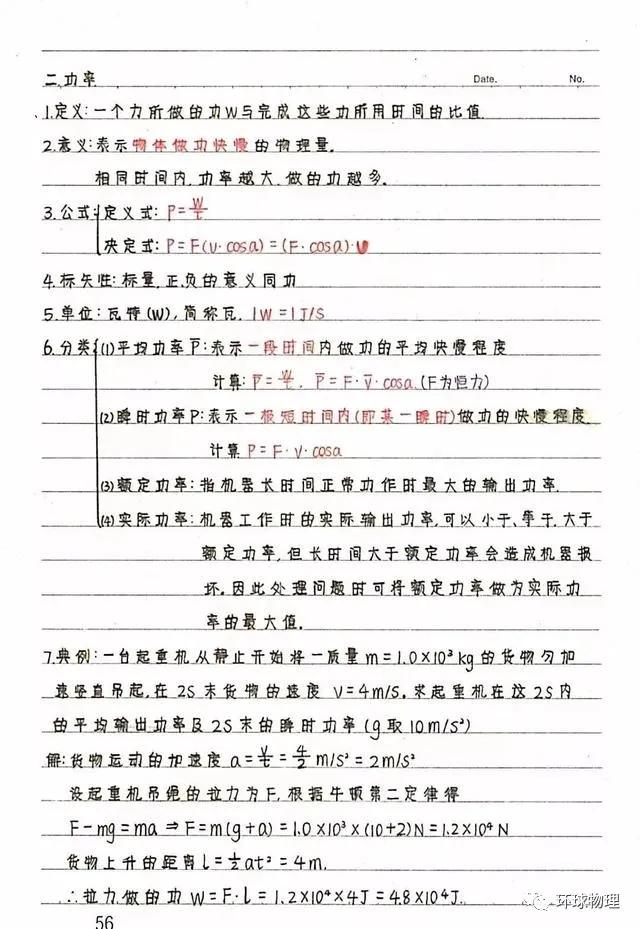 二.功率
Date. No.
1.定义:一个力所做的功W与完成这些功所用时间的比值.
2.意义:表示物体做功快慢的物理量.
相同时间内,功率越大.做的功越多.
3.公式:定义式: P=W/t
决定式: P=F(v·cosa)=(F·cosa)·v
4.标矢性:标量.正.负的意义同功
5.单位:瓦特(W),简称瓦. 1W=1J/S
6.分类:(1)平均功率P̅:表示一段时间内做功的平均快慢程度
计算: P̅=W/t, P̅=F·v̅·cosa.(F为恒力)
(2)瞬时功率P:表示一极短时间内(即某一瞬时)做功的快慢程度.
计算 P=F·v·cosa
(3)额定功率:指机器长时间正常功作时最大的输出功率.
(4)实际功率:机器工作时的实际输出功率,可以小于、等于.大于
额定功率,但长时间大于额定功率会造成机器损
坏.因此处理问题时可将额定功率做为实际功
率的最大值.
7.典例:一台起重机从静止开始将一质量m=1.0×10³kg的货物匀加
速竖直吊起,在2S末货物的速度 v=4m/s.求起重机在这2S内
的平均输出功率及2S末的瞬时功率(g取10m/s²)
解:货物运动的加速度a=v/t=4/2 m/s²=2m/s²
设起重机吊绳的拉力为F,根据牛顿第二定律得
F-mg=ma⇒F=m(g+a)=1.0×10³×(10+2)N=1.2×10⁴N
货物上升的距离l=½at²=4m.
∴拉力做的功W=F·l=1.2×10⁴×4J=4.8×10⁴J.
环球物理
56